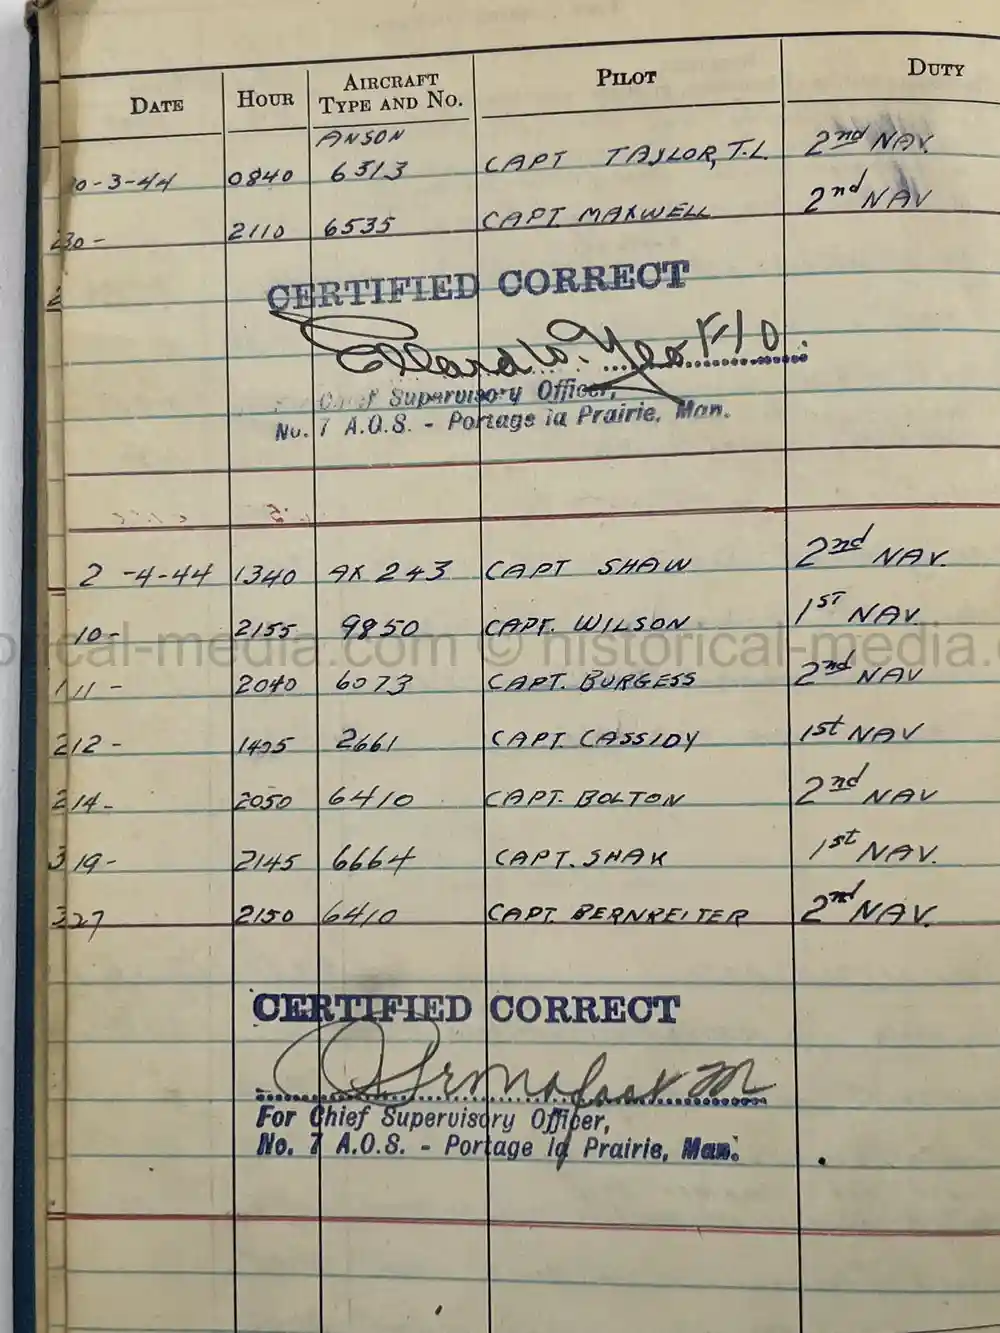 DATE HOUR AIRCRAFT TYPE AND No. PILOT DUTY
ANSON
0-3-44 0840 6513 CAPT TAYLOR, T.L. 2nd NAV.
30- 2110 6535 CAPT. MAXWELL 2nd NAV
CERTIFIED CORRECT
F/O
Chief Supervisory Officer,
No. 7 A.O.S. - Portage la Prairie, Man.
2-4-44 1340 AX 243 CAPT SHAW 2nd NAV.
10- 2155 9850 CAPT. WILSON 1ST NAV
historical-media.com © historical-media.
11- 2040 6073 CAPT. BURGESS 2nd NAV
12- 2661 CAPT. CASSIDY 1st NAV
14- 2050 6410 CAPT. BOLTON 2nd NAV
19- 2145 6664 CAPT. SHAK 1st NAV.
27 2150 6410 CAPT. BERNREITER 2nd NAV.
CERTIFIED CORRECT
For Chief Supervisory Officer,
No. 7 A.O.S. - Portage la Prairie, Man.